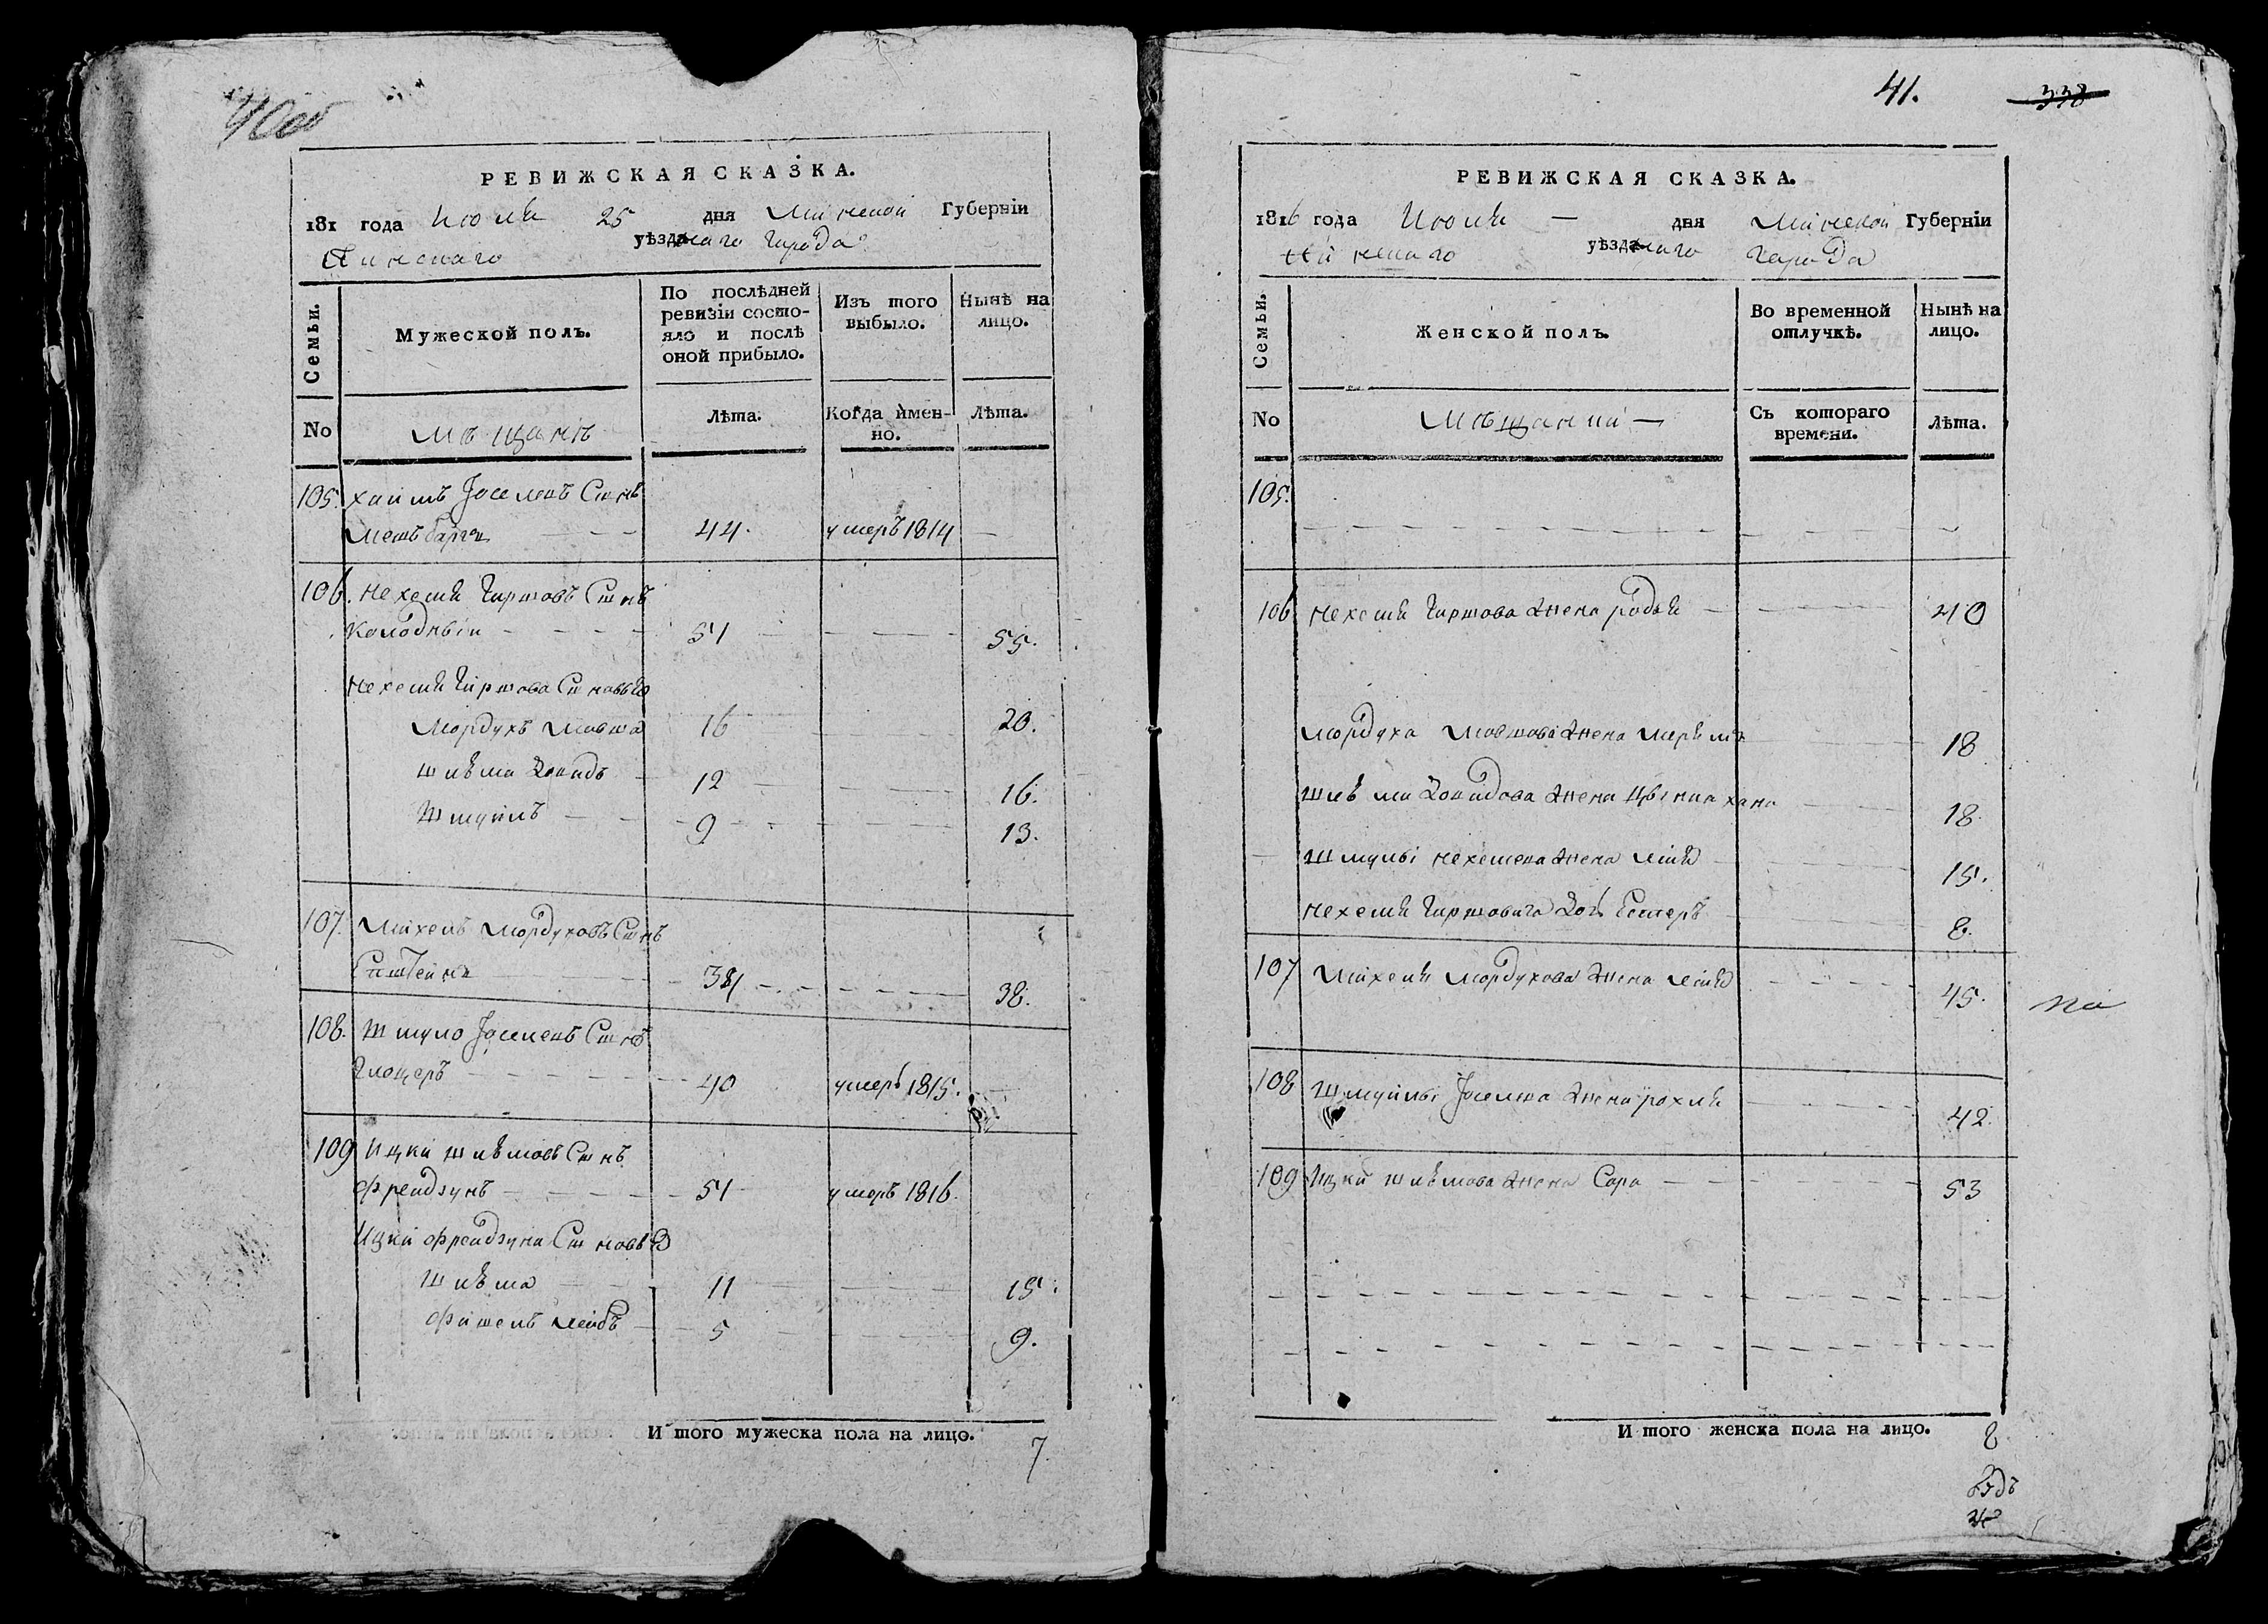 40об
РЕВИЖСКАЯ СКАЗКА.
181 года Июля 25 дня Минской Губерніи
Пинскаго уѣзднаго города
Семьи.
Мужеской полъ.
По послѣдней ревизіи состояло и послѣ оной прибыло.
Изъ того выбыло.
Нынѣ на лицо.
No
Мѣщанъ
Лѣта.
Когда имен-
но.
Лѣта.
105. Хаимъ Іоселевъ Сынъ
44. умеръ 1814 —
106. Нехемя Гиршовъ Сынъ
Колодный 51 55.
Нехемя Гиршова Сыновья
Мордухъ Мовша 16 20.
Шлѣма Довидъ 12 16.
Шмуйлъ 9 13.
107. Михель Мордуховъ Сынъ
Епштейнъ 34 38.
108. Шмуло Іоселевъ Сынъ
Глоцеръ 40 умеръ 1815.
109 Ицка Шлѣмовъ Сынъ
Фрейдзунъ 51 умеръ 1816.
Ицки Фрейдзуна Сыновья
Шлѣма 11 15.
Фишель Лейбъ 5 9.
И того мужеска пола на лицо. 7
41. 338
РЕВИЖСКАЯ СКАЗКА.
1816 года Июля — дня Минской Губерніи
Пинскаго уѣзднаго города
Семьи.
Женской полъ.
Во временной
отлучкѣ.
Нынѣ на
лицо.
No
Мѣщанки —
Съ котораго
времени.
Лѣта.
105.
106 Нехемя Гиршова жена Родля 40
Мордуха Мовшова жена Мерьма 18
Шлѣмы Довидова жена хана 18
Шмуйлы Нехемева жена Лея 15.
Нехемя Гиршовича дочь Естеръ 8.
107 Михеля Мордухова жена Лея 45.
108 Шмуйлы Іоселева жена Рохля 42.
109 Ицки Шлѣмова жена Сора 53
И того женска пола на лицо. 8